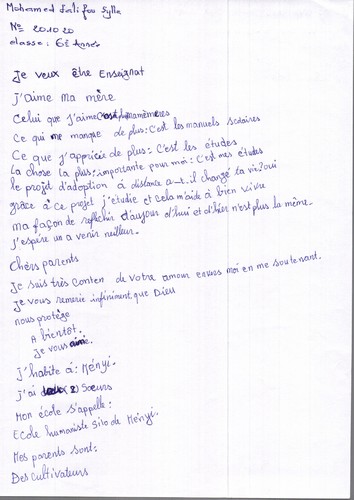 Mohamed Salifou Sylla
N° 20.10 20
classe : 6è Année
Je veux être Enseignat
J'aime ma mère
Celui que j'aime
Ce qui me manque de plus : C'est les manuels scolaires
Ce que j'apprécie de plus : C'est les études
la chose la plus importante pour moi : C'est mes études
le projet d'adoption à distance a-t-il changé ta vie? oui
grâce à ce projet j'étudie et cela m'aide à bien vivre
ma façon de reflechir d'aujour d'hui et d'hier n'est plus la même.
j'espère un a venir meilleur.
Chèrs parents
Je suis très conten de votre amour envers moi en me soutenant.
Je vous remercie infiniment, que Dieu
nous protège
A bientôt.
Je vous aime.
J'habite à : Ményi.
J'ai deux (2) Sœurs
Mon école s'appelle :
Ecole humaniste Silo de Ményi.
Mes parents sont :
Des cultivateurs